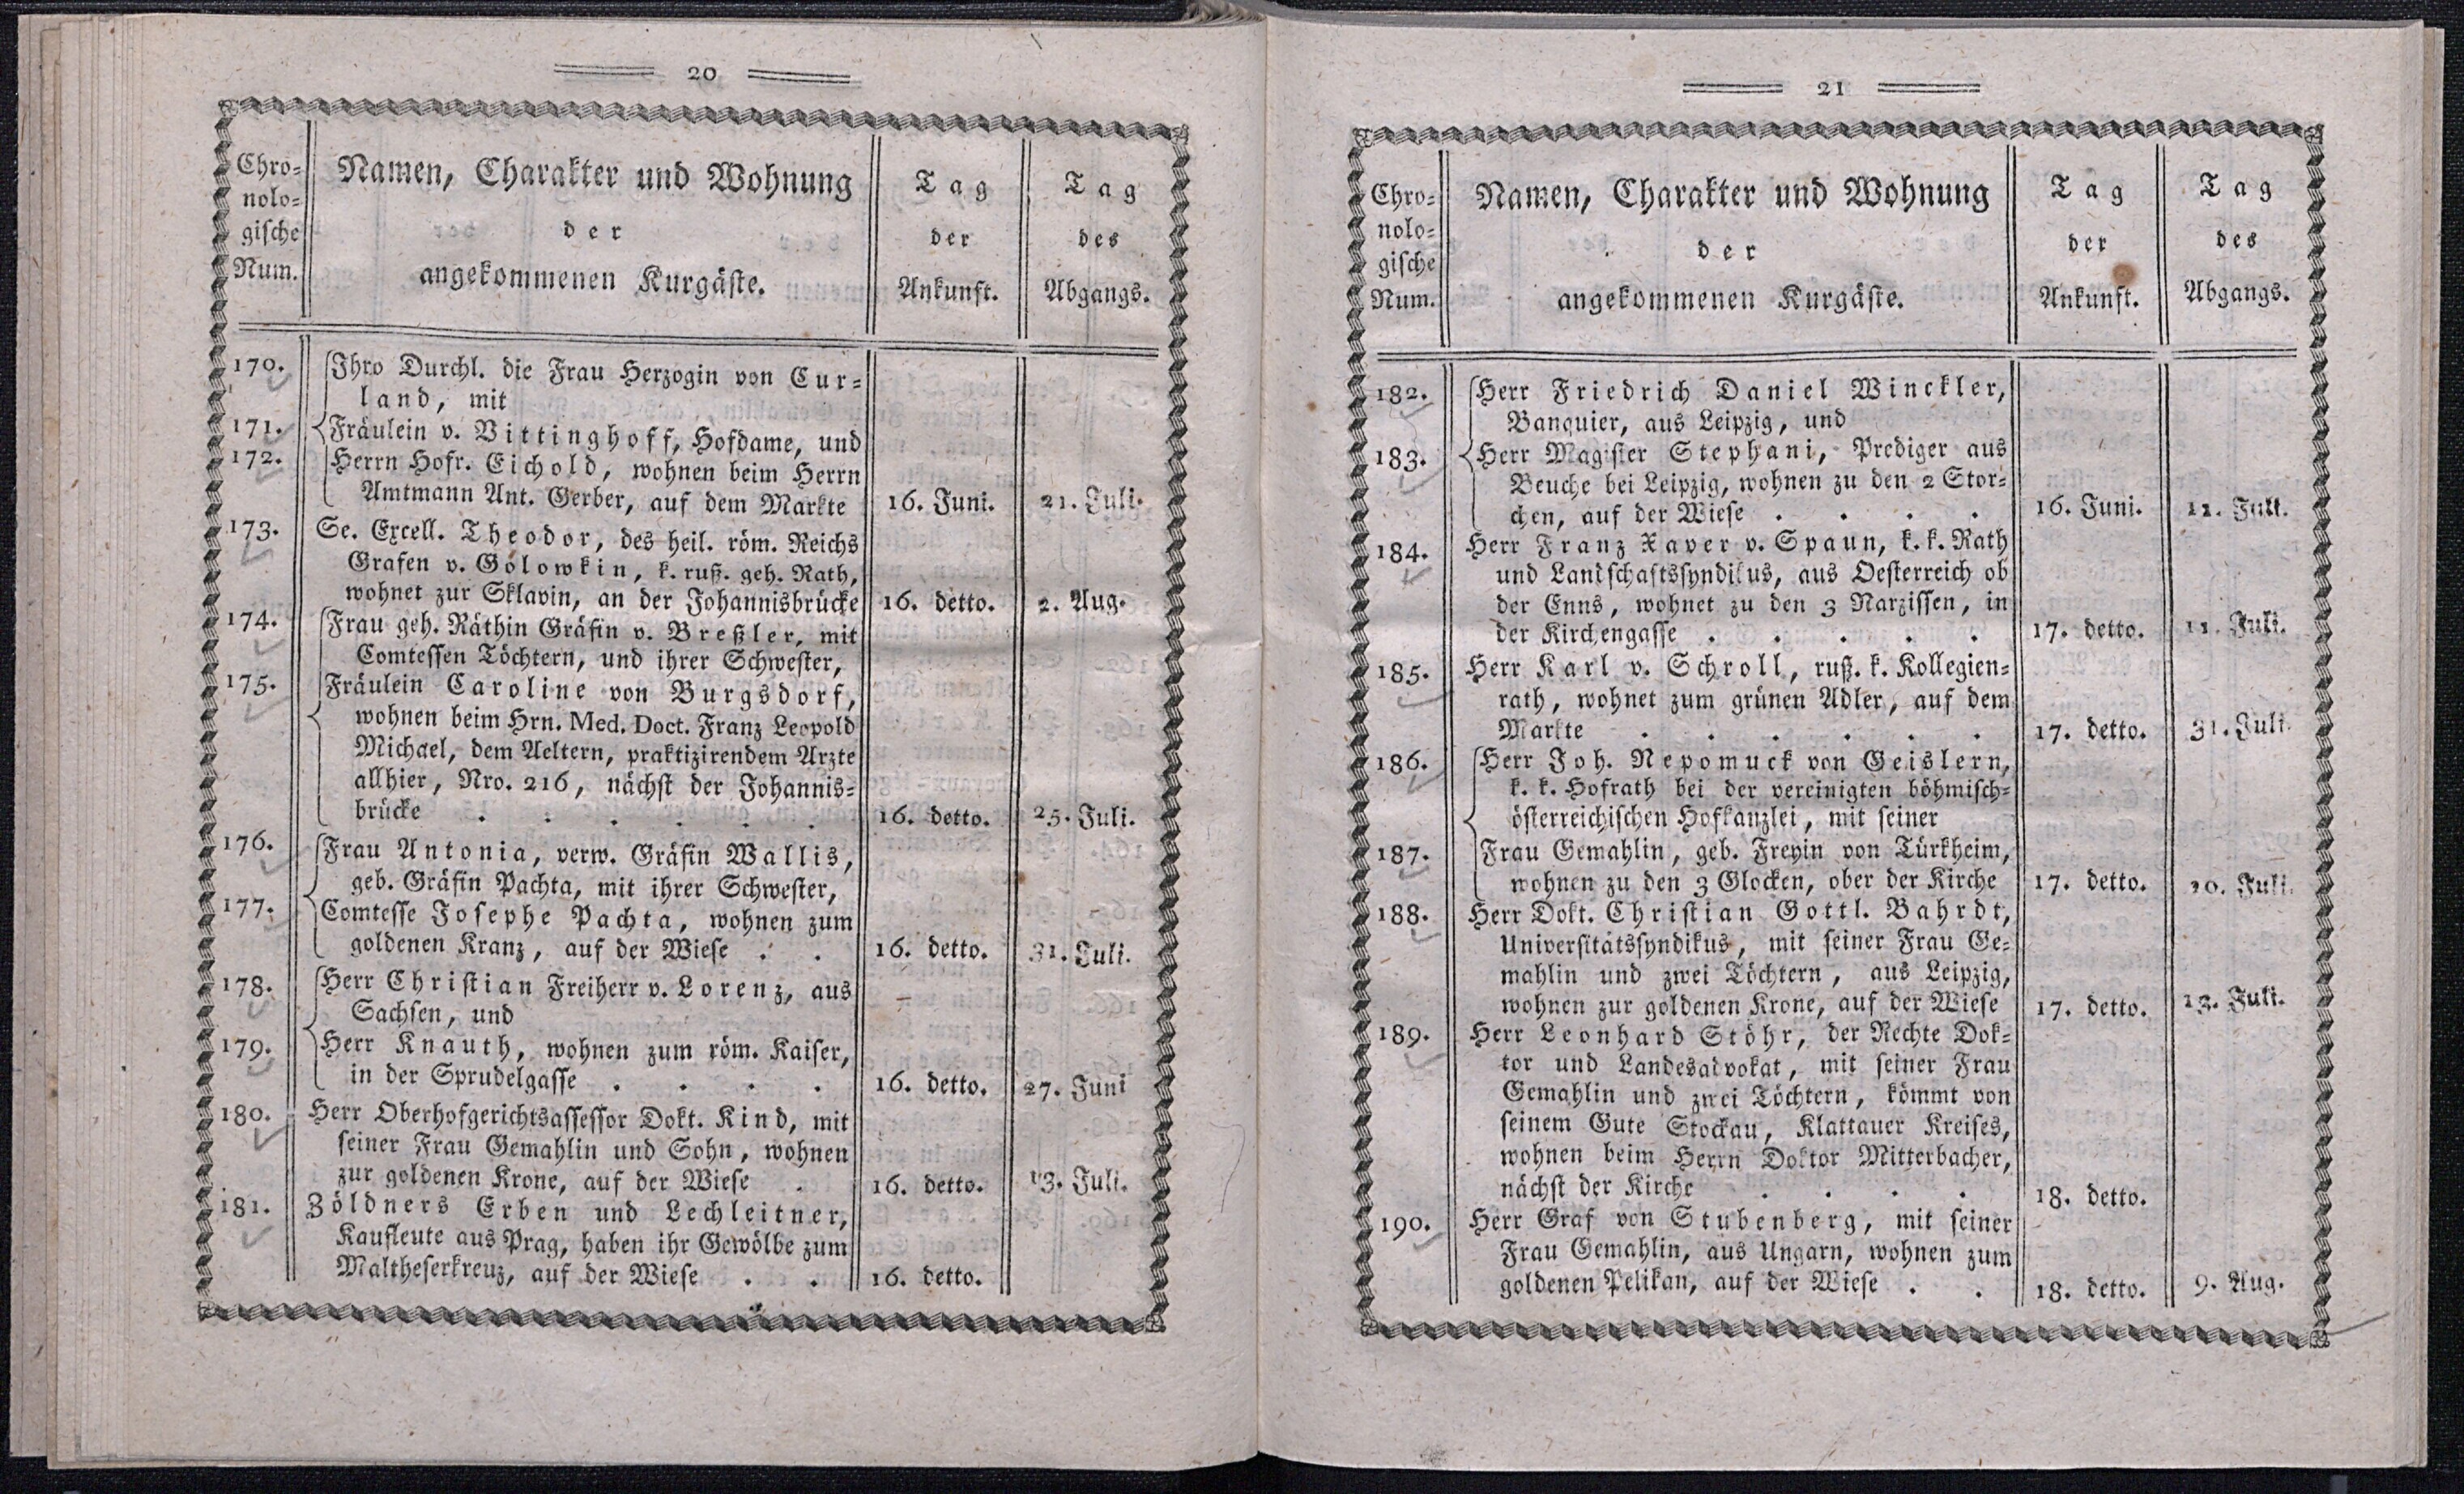 20
Chro-
nolo-
gische
Num.
Namen, Charakter und Wohnung
der
angekommenen Kurgäste.
Tag
der
Ankunft.
Tag
des
Abgangs.
170. Ihro Durchl. die Frau Herzogin von Cur-
land, mit
171. Fräulein v. Vittinghoff, Hofdame, und
172. Herrn Hofr. Eichold, wohnen beim Herrn
Amtmann Ant. Gerber, auf dem Markte 16. Juni. 21. Juli.
173. Se. Excell. Theodor, des heil. röm. Reichs
Grafen v. Golowkin, k. ruß. geh. Rath,
wohnet zur Sklavin, an der Johannisbrücke 16. detto. 2. Aug.
174. Frau geh. Räthin Gräfin v. Breßler, mit
Comtessen Töchtern, und ihrer Schwester,
175. Fräulein Caroline von Burgsdorf,
wohnen beim Hrn. Med. Doct. Franz Leopold
Michael, dem Aeltern, praktizirendem Arzte
allhier, Nro. 216, nächst der Johannis-
brücke . . . . . . 16. detto. 25. Juli.
176. Frau Antonia, verw. Gräfin Wallis,
geb. Gräfin Pachta, mit ihrer Schwester,
177. Comtesse Josephe Pachta, wohnen zum
goldenen Kranz, auf der Wiese . . 16. detto. 31. Juli.
178. Herr Christian Freiherr v. Lorenz, aus
Sachsen, und
179. Herr Knauth, wohnen zum röm. Kaiser,
in der Sprudelgasse . . . . 16. detto. 27. Juni
180. Herr Oberhofgerichtsassessor Dokt. Kind, mit
seiner Frau Gemahlin und Sohn, wohnen
zur goldenen Krone, auf der Wiese . 16. detto. 13. Juli.
181. Zöldners Erben und Lechleitner,
Kaufleute aus Prag, haben ihr Gewölbe zum
Maltheserkreuz, auf der Wiese . . 16. detto.
21
Chro-
nolo-
gische
Num.
Namen, Charakter und Wohnung
der
angekommenen Kurgäste.
Tag
der
Ankunft.
Tag
des
Abgangs.
182. Herr Friedrich Daniel Winckler,
Banquier, aus Leipzig, und
183. Herr Magister Stephani, Prediger aus
Beuche bei Leipzig, wohnen zu den 2 Stor-
chen, auf der Wiese . . . . 16. Juni. 11. Juli.
184. Herr Franz Xaver v. Spaun, k. k. Rath
und Landschaftssyndikus, aus Oesterreich ob
der Enns, wohnet zu den 3 Narzissen, in
der Kirchengasse . . . . . 17. detto. 11. Juli.
185. Herr Karl v. Schroll, ruß. k. Kollegien-
rath, wohnet zum grünen Adler, auf dem
Markte . . . . . . 17. detto. 31. Juli.
186. Herr Joh. Nepomuck von Geislern,
k. k. Hofrath bei der vereinigten böhmisch-
österreichischen Hofkanzlei, mit seiner
187. Frau Gemahlin, geb. Freyin von Türkheim,
wohnen zu den 3 Glocken, ober der Kirche 17. detto. Juli.
188. Herr Dokt. Christian Gottl. Bahrdt,
Universitätssyndikus, mit seiner Frau Ge-
mahlin und zwei Töchtern, aus Leipzig,
wohnen zur goldenen Krone, auf der Wiese 17. detto. 13. Juli.
189. Herr Leonhard Stöhr, der Rechte Dok-
tor und Landesadvokat, mit seiner Frau
Gemahlin und zwei Töchtern, kömmt von
seinem Gute Stockau, Klattauer Kreises,
wohnen beim Herrn Doktor Mitterbacher,
nächst der Kirche . . . . 18. detto.
190. Herr Graf von Stubenberg, mit seiner
Frau Gemahlin, aus Ungarn, wohnen zum
goldenen Pelikan, auf der Wiese . . 18. detto. 9. Aug.